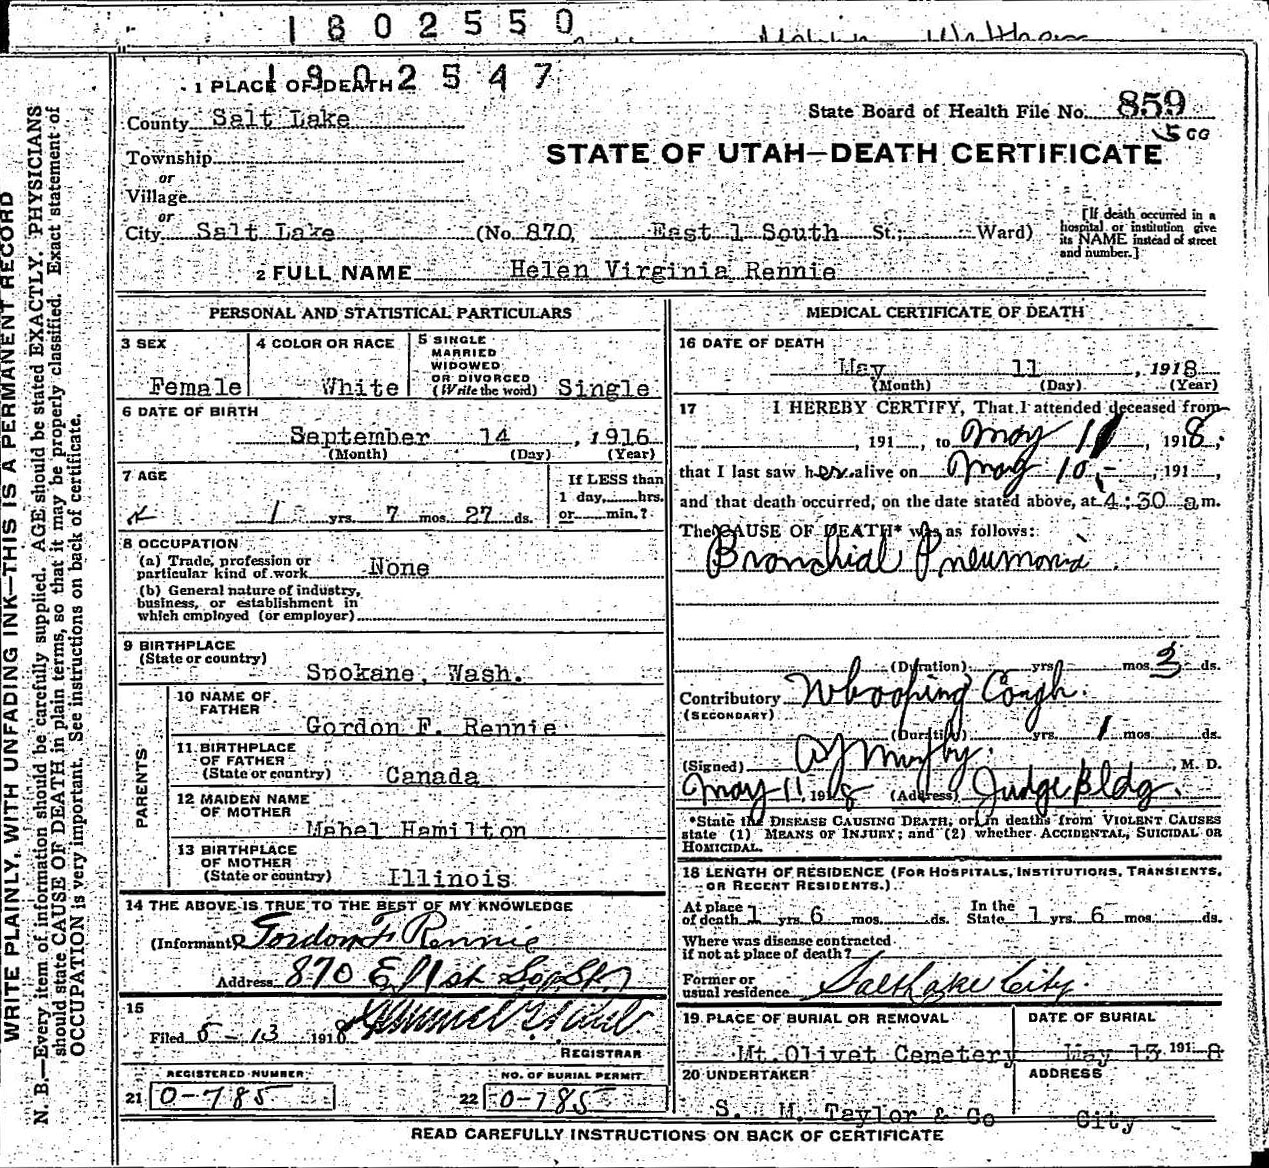 1802550
1802547
1 PLACE OF DEATH
County Salt Lake
Township
or
Village
or
City Salt Lake (No. 870, East 1 South St.; Ward)
State Board of Health File No. 859
STATE OF UTAH—DEATH CERTIFICATE
[If death occurred in a
hospital or institution give
its NAME instead of street
and number.]
2 FULL NAME Helen Virginia Rennie
PERSONAL AND STATISTICAL PARTICULARS
3 SEX
Female
4 COLOR OR RACE
White
5 SINGLE
MARRIED
WIDOWED
OR DIVORCED
(Write the word) Single
6 DATE OF BIRTH
September 14, 1916
(Month) (Day) (Year)
7 AGE
1 yrs. 7 mos. 27 ds.
If LESS than
1 day, hrs.
or min.?
8 OCCUPATION
(a) Trade, profession or
particular kind of work None
(b) General nature of industry,
business, or establishment in
which employed (or employer)
9 BIRTHPLACE
(State or country)
Spokane, Wash.
PARENTS
10 NAME OF
FATHER
Gordon F. Rennie
11 BIRTHPLACE
OF FATHER
(State or country) Canada
12 MAIDEN NAME
OF MOTHER
Mabel Hamilton
13 BIRTHPLACE
OF MOTHER
(State or country) Illinois
14 THE ABOVE IS TRUE TO THE BEST OF MY KNOWLEDGE
(Informant) Gordon F Rennie
Address 870 E 1st So St.
15
Filed 5-13 1918
REGISTRAR
REGISTERED NUMBER
21 0-785
NO. OF BURIAL PERMIT
22 0-785
MEDICAL CERTIFICATE OF DEATH
16 DATE OF DEATH
May 11, 1918
(Month) (Day) (Year)
17 I HEREBY CERTIFY, That I attended deceased from
, 191 , to May 11, 1918,
that I last saw her alive on May 10, 191 ,
and that death occurred, on the date stated above, at 4:30 am.
The CAUSE OF DEATH* was as follows:
Bronchial Pneumonia
(Duration) yrs. mos. 3 ds.
Contributory Whooping Cough.
(SECONDARY)
(Duration) yrs. 1 mos. ds.
(Signed) , M. D.
May 11, 1918 (Address) Judge Bldg.
*State the DISEASE CAUSING DEATH, or, in deaths from VIOLENT CAUSES
state (1) MEANS OF INJURY; and (2) whether ACCIDENTAL, SUICIDAL OR
HOMICIDAL.
18 LENGTH OF RESIDENCE (FOR HOSPITALS, INSTITUTIONS, TRANSIENTS,
OR RECENT RESIDENTS.)
At place
of death 1 yrs. 6 mos. ds.
In the
State 1 yrs. 6 mos. ds.
Where was disease contracted
if not at place of death?
Former or
usual residence Salt Lake City.
19 PLACE OF BURIAL OR REMOVAL
Mt. Olivet Cemetery
DATE OF BURIAL
May 13 1918
20 UNDERTAKER
S. M. Taylor & Co
ADDRESS
City
READ CAREFULLY INSTRUCTIONS ON BACK OF CERTIFICATE
WRITE PLAINLY, WITH UNFADING INK—THIS IS A PERMANENT RECORD
N. B.—Every item of information should be carefully supplied. AGE should be stated EXACTLY. PHYSICIANS
should state CAUSE OF DEATH in plain terms, so that it may be properly classified. Exact statement of
OCCUPATION is very important. See instructions on back of certificate.